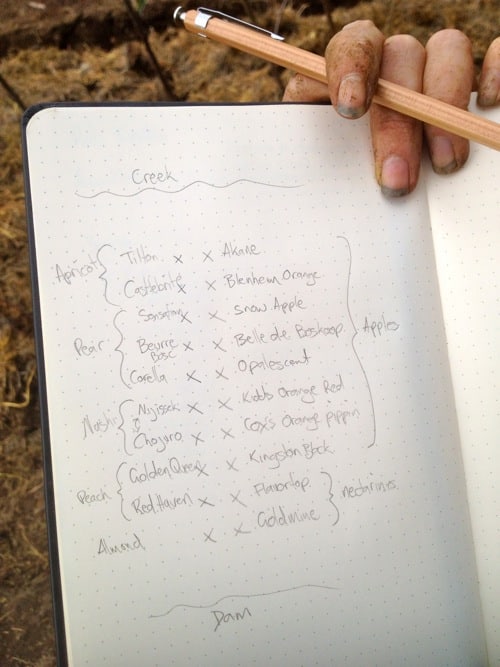 Creek
Apricot Tilton x x Akane
Castlebrite x x Blenheim Orange
Pear Sensation x x Snow Apple
Beurre Bosc x x Belle de Boskoop Apples
Corella x x Opalescent
Nashi Nijisseki x x Kidds Orange Red
Chojuro x x Cox's Orange pippin
Peach Golden Queen x x Kingston Black
Red Haven x x Flavortop nectarines
Almond x x Goldmine
Dam